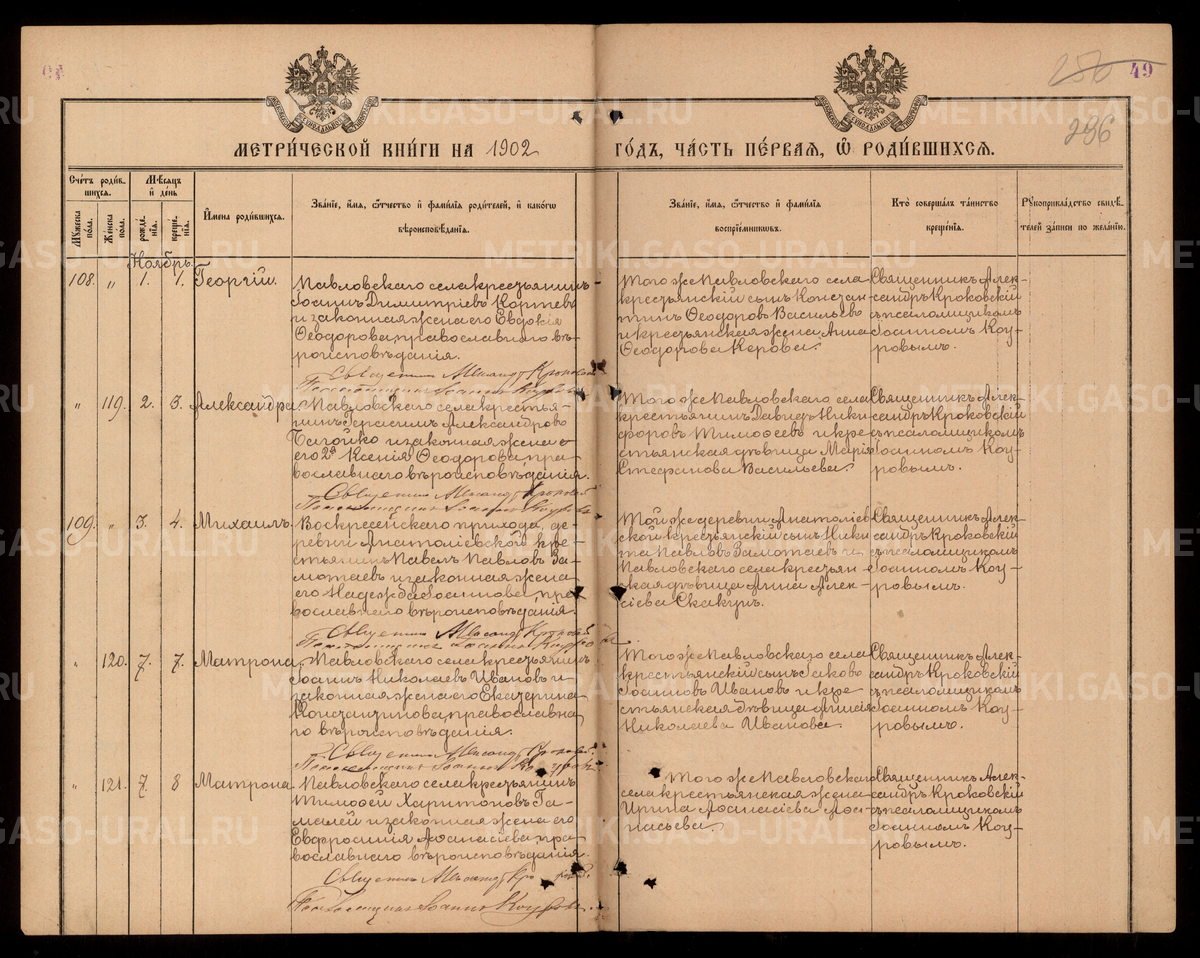 49
256
296
МЕТРИ́ЧЕСКОЙ КНИ́ГИ НА 1902 ГО́ДЪ, ЧА́СТЬ ПЕ́РВАѦ, Ѽ РОДИ́ВШИХСѦ.
Счетъ роди́в-
шихсѧ.
Мѣ́сѧцъ
и҆ де́нь
Мꙋ́жеска по́ла.
Же́нска по́ла.
рожде́-
нїѧ.
креще́-
нїѧ.
И҆мена̀ роди́вшихсѧ.
Зва́нїе, и҆́мѧ, ѻ҆́тчество и҆ фамі́лїѧ роди́телей, и҆ како́гѡ
вѣроисповѣ́данїѧ.
Зва́нїе, и҆́мѧ, ѻ҆́тчество и҆ фамі́лїѧ
воспрїе́мникѡвъ.
Кто̀ соверша́лъ та́инство
креще́нїѧ.
Рꙋкоприкла́дство свидѣ́-
телей за́писи по жела́нїю.
Ноябрь.
108. „ 1. 1. Георгій.
Павловскаго села крестьянинъ
Іоаннъ Димитріевъ Кортевъ
и законная жена его Евдокія
Ѳеодорова, православнаго вѣ-
роисповѣданія.
Священникъ Александръ Кроковскій
Псаломщикъ Іоаннъ Коуровъ
Того же Павловскаго села
крестьянскій сынъ Констан
тинъ Ѳеодоровъ Васильевъ
и крестьянская жена Анна
Ѳеодорова Керова.
Священникъ Алек-
сандръ Кроковскій
съ псаломщикомъ
Іоанномъ Коу-
ровымъ.
„ 119. 2. 3. Александра
Павловскаго села крестья-
нинъ Герасимъ Александровъ
и законная жена
его 2ª Ксенія Ѳеодорова, пра-
вославнаго вѣроисповѣданія.
Священникъ Александръ Кроковскій
Псаломщикъ Іоаннъ Коуровъ
Того же Павловскаго села
крестьянинъ Давидъ Ники
форовъ Тимоѳеевъ и кре
стьянская дѣвица Марія
Стефанова Васильева.
Священникъ Алек-
сандръ Кроковскій
съ псаломщикомъ
Іоанномъ Коу-
ровымъ.
109. „ 3. 4. Михаилъ.
Воскресенскаго прихода, де-
ревни Анатоліевской кре-
стьянинъ Павелъ Павловъ За-
мотаевъ и законная жена
его Надежда Іоаннова, пра-
вославнаго вѣроисповѣданія.
Священникъ Александръ Кроковскій
Псаломщикъ Іоаннъ Коуровъ
Той же деревни Анатоліев
ской крестьянскій сынъ Ники
та Павловъ Замотаевъ и
Павловскаго села крестьян
ская дѣвица Анна Алек-
сіева Скакунъ.
Священникъ Алек-
сандръ Кроковскій
съ псаломщикомъ
Іоанномъ Коу-
ровымъ.
„ 120. 7. 7. Матрона.
Павловскаго села крестьянинъ
Іоаннъ Николаевъ Ивановъ и
законная жена его Екатерина
Константинова, православна
го вѣроисповѣданія.
Священникъ Александръ Кроковскій
Псаломщикъ Іоаннъ Коуровъ
Того же Павловскаго села
крестьянскій сынъ Іаковъ
Іоанновъ Ивановъ и кре
стьянская дѣвица Анисія
Николаева Иванова.
Священникъ Алек-
сандръ Кроковскій
съ псаломщикомъ
Іоанномъ Коу-
ровымъ.
„ 121. 7. 8 Матрона
Павловскаго села крестьянинъ
Тимоѳей Харитоновъ Га-
малей и законная жена его
Евфросинія Аѳанасіева, пра-
вославнаго вѣроисповѣданія
Священникъ Александръ Кроковскій
Псаломщикъ Іоаннъ Коуровъ
Того же Павловскаго
села крестьянская жена
Ирина Аѳанасіева Аѳа-
насьева.
Священникъ Алек-
сандръ Кроковскій
съ псаломщикомъ
Іоанномъ Коу-
ровымъ.
METRIKI.GASO-URAL.RU